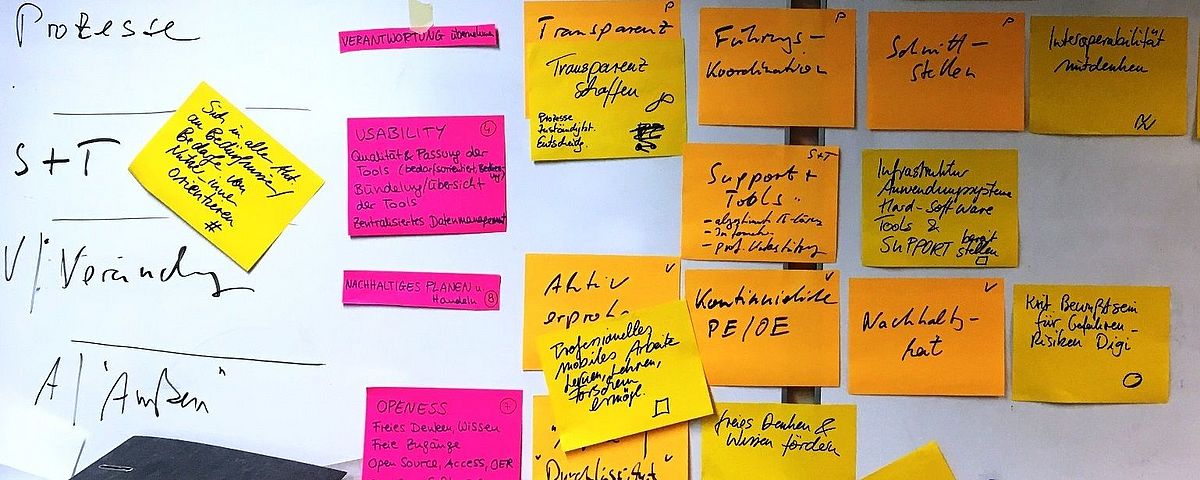 Prozesse
S+T
V / Veränderung
A / "Außen"
Sich in allen Akt.
an Bedürfnissen/
Bedarfe von
Nutzer-innen
orientieren
#
VERANTWORTUNG übernehmen
USABILITY 4
Qualität & Passung der
Tools (bedarfsorientiert,
Bündelung/Übersicht
der Tools
Zentralisiertes Datenmanagement
NACHHALTIGES PLANEN u.
Handeln 8
OPENESS 7
Freies Denken, Wissen
Freie Zugänge
Open Source, Access, OER
P
Transparenz
Transparenz
schaffen
Prozesse
Zuständigk.
Entscheidg.
P
Führungs-
Koordination
P
Schnitt-
stellen
Interoperabilität
mitdenken
S+T
Support +
Tools
Infrastruktur
Anwendungssysteme
Hard-Software
Tools &
SUPPORT bereit
stellen
V
Aktiv
erprob-
Professionelles
mobiles Arbeite
Lernen, Lehren,
Forschen
ermögl.
V
Kontinuierliche
PE/OE
V
Nachhaltig-
keit
Krit Bewußtsein
für Gefahren-
Risiken Digi
"Durchlässigkeit"
freies Denken &
Wissen fördern